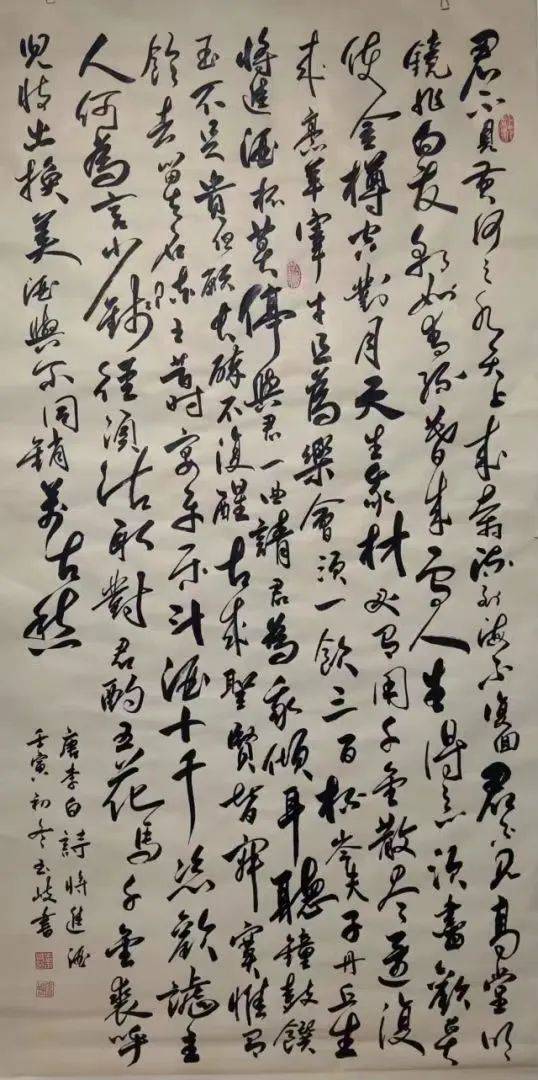 君不見黃河之水天上來奔流到海不復回君不見高堂明
鏡悲白髮朝如青絲暮成雪人生得意須盡歡莫
使金樽空對月天生我材必有用千金散盡還復
來烹羊宰牛且為樂會須一飲三百杯岑夫子丹丘生
將進酒杯莫停與君一曲請君為我傾耳聽鐘鼓饌
玉不足貴但願長醉不復醒古來聖賢皆寂寞惟有
飲者留其名陳王昔時宴平樂斗酒十千恣歡謔主
人何為言少錢徑須沽取對君酌五花馬千金裘呼
兒將出換美酒與爾同銷萬古愁
唐李白詩將進酒
壬寅初冬書